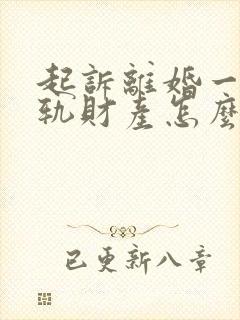 起訴離婚一
軌財產怎麼
已更新八章